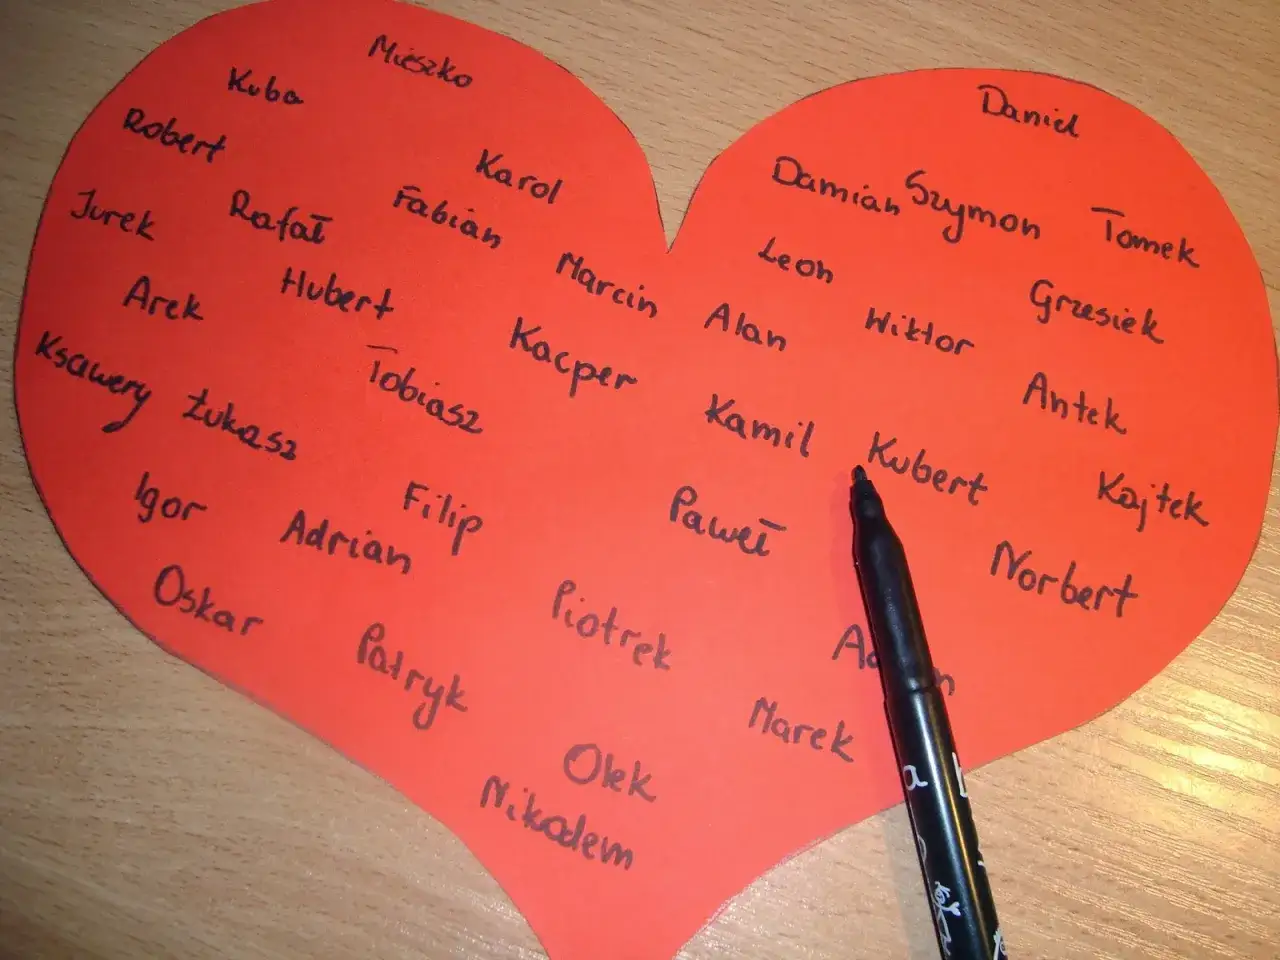 Mieszko
Kuba
Robert
Karol
Jurek
Rafał
Fabian
Arek
Hubert
Marcin
Ksawery
Łukasz
Tobiasz
Kacper
Igor
Adrian
Filip
Oskar
Patryk
Piotrek
Olek
Nikodem
Daniel
Damian
Szymon
Tomek
Leon
Grzesiek
Alan
Wiktor
Antek
Kamil
Kubert
Kajtek
Paweł
Norbert
Marek